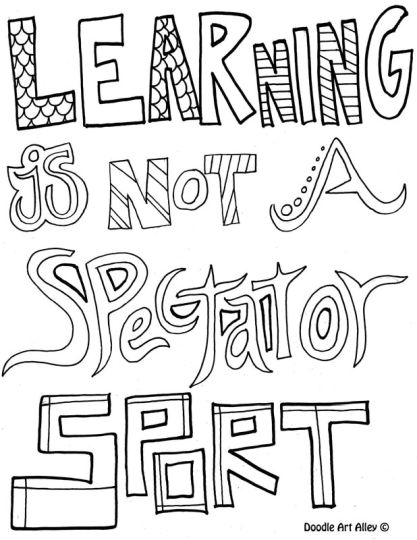 LEARNING
iS NoT A
SPectator
SPORT
Doodle Art Alley ©